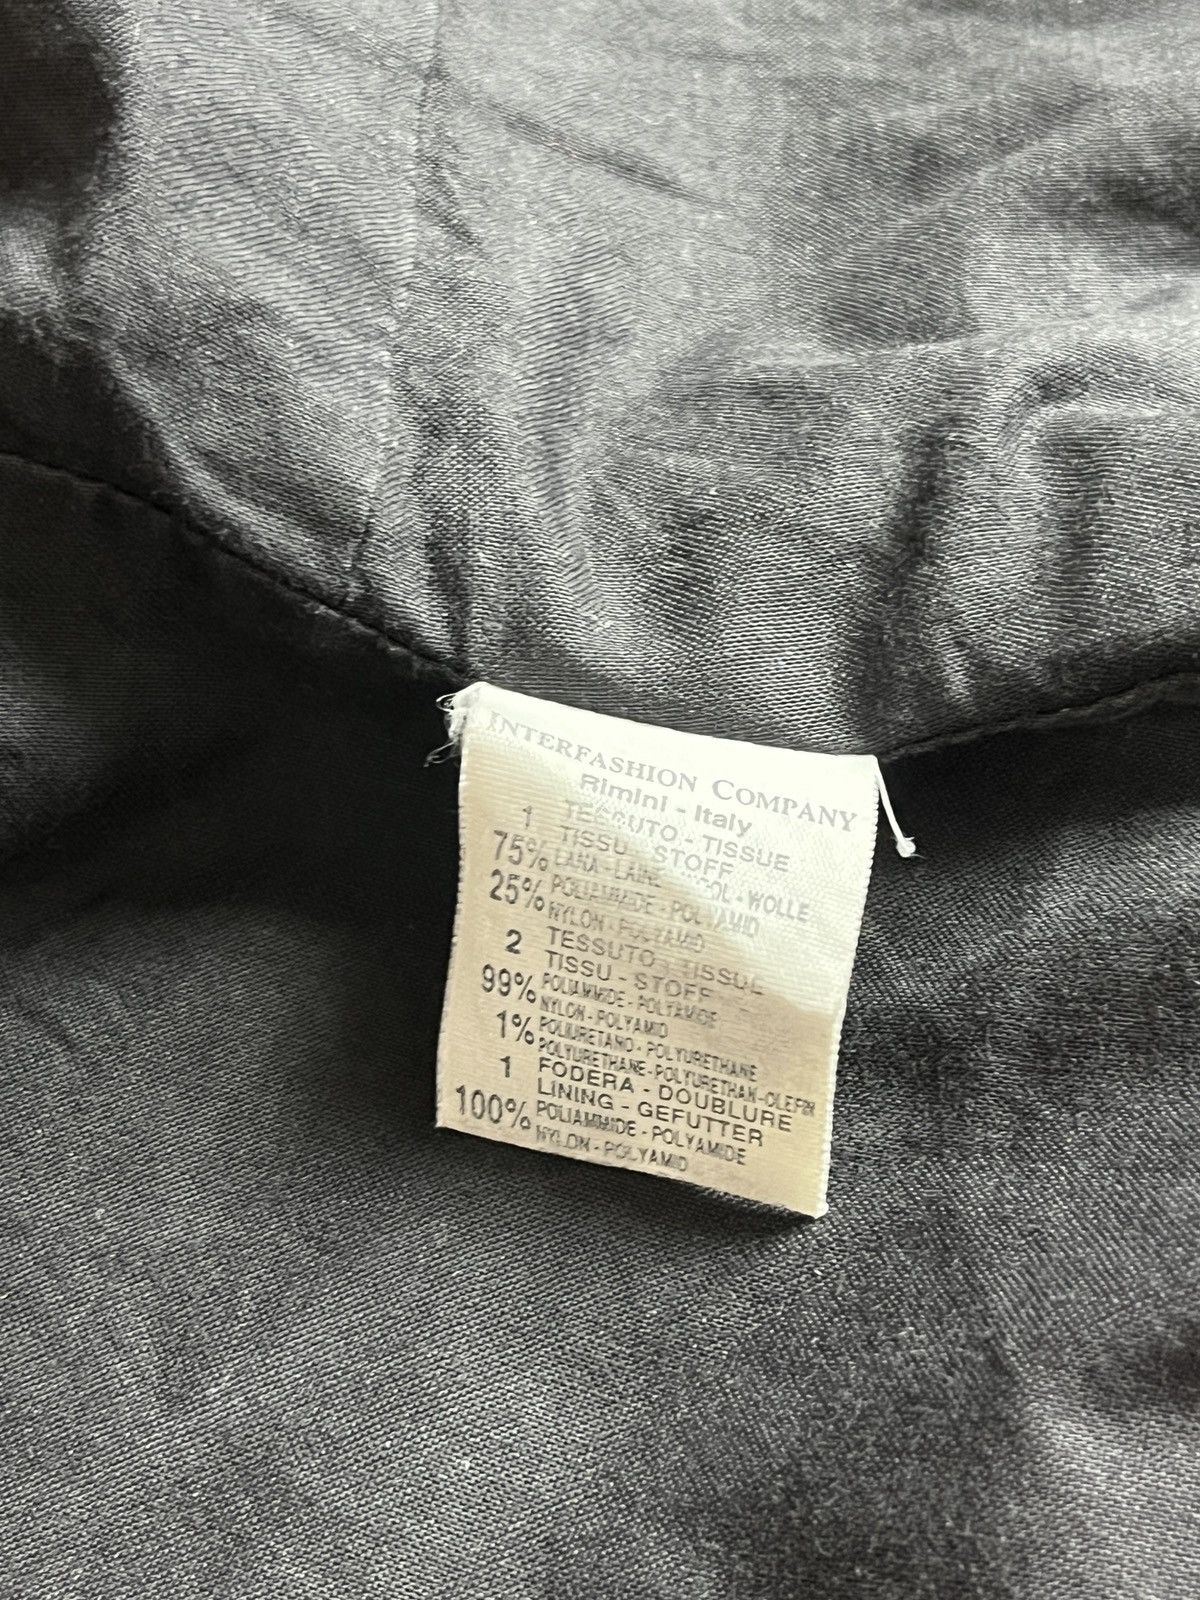 INTERFASHION COMPANY
Rimini - Italy
1 TESSUTO - TISSUE
TISSU - STOFF
75% LANA - LAINE WOOL - WOLLE
25% POLIAMMIDE - POLYAMID
NYLON - POLYAMID
2 TESSUTO - TISSUE
TISSU - STOFF
99% POLIAMMIDE - POLYAMIDE
NYLON - POLYAMID
1% POLIURETANO - POLYURETHANE
POLYURETHANE - POLYURETHAN - CLEFIN
1 FODERA - DOUBLURE
LINING - GEFUTTER
100% POLIAMMIDE - POLYAMIDE
NYLON - POLYAMID